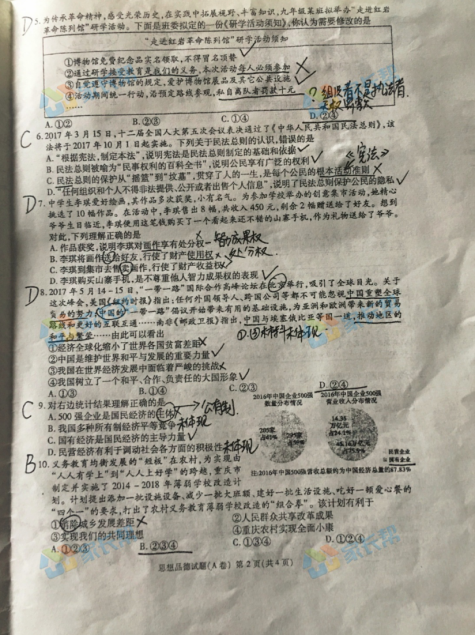 D 5.为传承革命精神,感受光荣历史,在实践中拓展视野、丰富知识,九年级某班拟举办"走进红岩
革命陈列馆"研学活动。下面是班委拟定的一份《研学活动须知》,你认为需要修改的是
"走进红岩革命陈列馆"研学活动须知
①博物馆免费纪念品实名领取,不得冒名顶替
②通过研学接受教育是我们的义务,本次活动每人必须参加
③自觉遵守博物馆的规定,爱护博物馆展品及其它公共设施
④活动期间统一行动,沿预定路线参观,私自离队者罚款十元
A.①② B.②③ C.①④ D.②④
C 6.2017年3月15日,十二届全国人大第五次会议表决通过了《中华人民共和国民法总则》,该
法将于2017年10月1日起实施。下列关于民法总则的认识,错误的是
A."根据宪法,制定本法",说明宪法是民法总则制定的基础和依据
B.民法总则被喻为"民事权利的百科全书",说明公民享有广泛的权利
《宪法》
C.民法总则的保护从"摇篮"到"坟墓",贯穿了人的一生,是每个公民的根本活动准则
D."任何组织和个人不得非法提供、公开或者出售个人信息",说明了民法总则保护公民的隐私
D 7.中学生李琪爱好绘画,其作品多次获奖,小有名气。为参加学校举办的创意集市活动,她精心
挑选了10幅作品。在活动中,李琪售出8幅,共收入450元,剩余2幅赠送给了好友。想到
爷爷生日临近,李琪使用这笔钱购买了一个看起来还不错的山寨手机,作为礼物送给了爷爷。
对此,下列理解正确的是
A.作品获奖,说明李琪对画作享有处分权 智力成果权
B.李琪将画作送给好友,行使了财产使用权 处分权
C.李琪到集市去售卖画作,行使了财产收益权
D.李琪购买山寨手机,是不尊重他人智力成果权的表现
D 8.2017年5月14-15日,"一带一路"国际合作高峰论坛在北京举行,吸引了全球目光。关于
这次峰会,美国《纽约时报》指出:任何外国领导人、跨国公司等都不可能忽视中国重塑全球
贸易的努力,中国的"一带一路"倡议开始带来有用的基础设施,为亚洲和欧洲带来新的贸易
路线和更好的互联互通……南非《邮政卫报》指出,中国与埃塞俄比亚等国一道,推动地区的
和平与繁荣……由此可以看出
①经济全球化缩小了世界各国贫富差距
②中国是维护世界和平与发展的重要力量
③我国在世界经济发展中面临着严峻的挑战
④我国树立了一个和平、合作、负责任的大国形象
A.①③ B.①④ C.②③ D.②④
C 9.对右边统计结果理解正确的是
A.500强企业是国民经济的主体 公有制
B.我国多种所有制经济平等竞争 未体现
C.国有经济是国民经济的主导力量
D.民营经济有利于调动社会各方面的积极性 未体现
2016年中国企业500强
数量分布情况
2016年中国企业500强
营业收入分布情况
民营企业
国有企业
注:2016年中国500强营业总额约为中国经济总量的87.83%
B 10.义务教育均衡发展的"授权"在农村,为实现由
"人人有学上"到"人人上好学"的跨越,重庆市
制定并实施了2014-2018年薄弱学校改造计
划。计划提出添加一批设施设备、减少一批大班额、建好一批生活设施、吃好一顿爱心餐的
"四个一"的要求,打出了农村义务教育薄弱学校改造的"组合拳"。该计划有利于
①消除城乡发展差距 ②人民群众共享改革成果
③实现我们的共同理想 ④重庆农村实现全面小康
A.①②③ B.②③④ C.①③④ D.①②④
思想品德试题(A卷) 第2页(共4页)